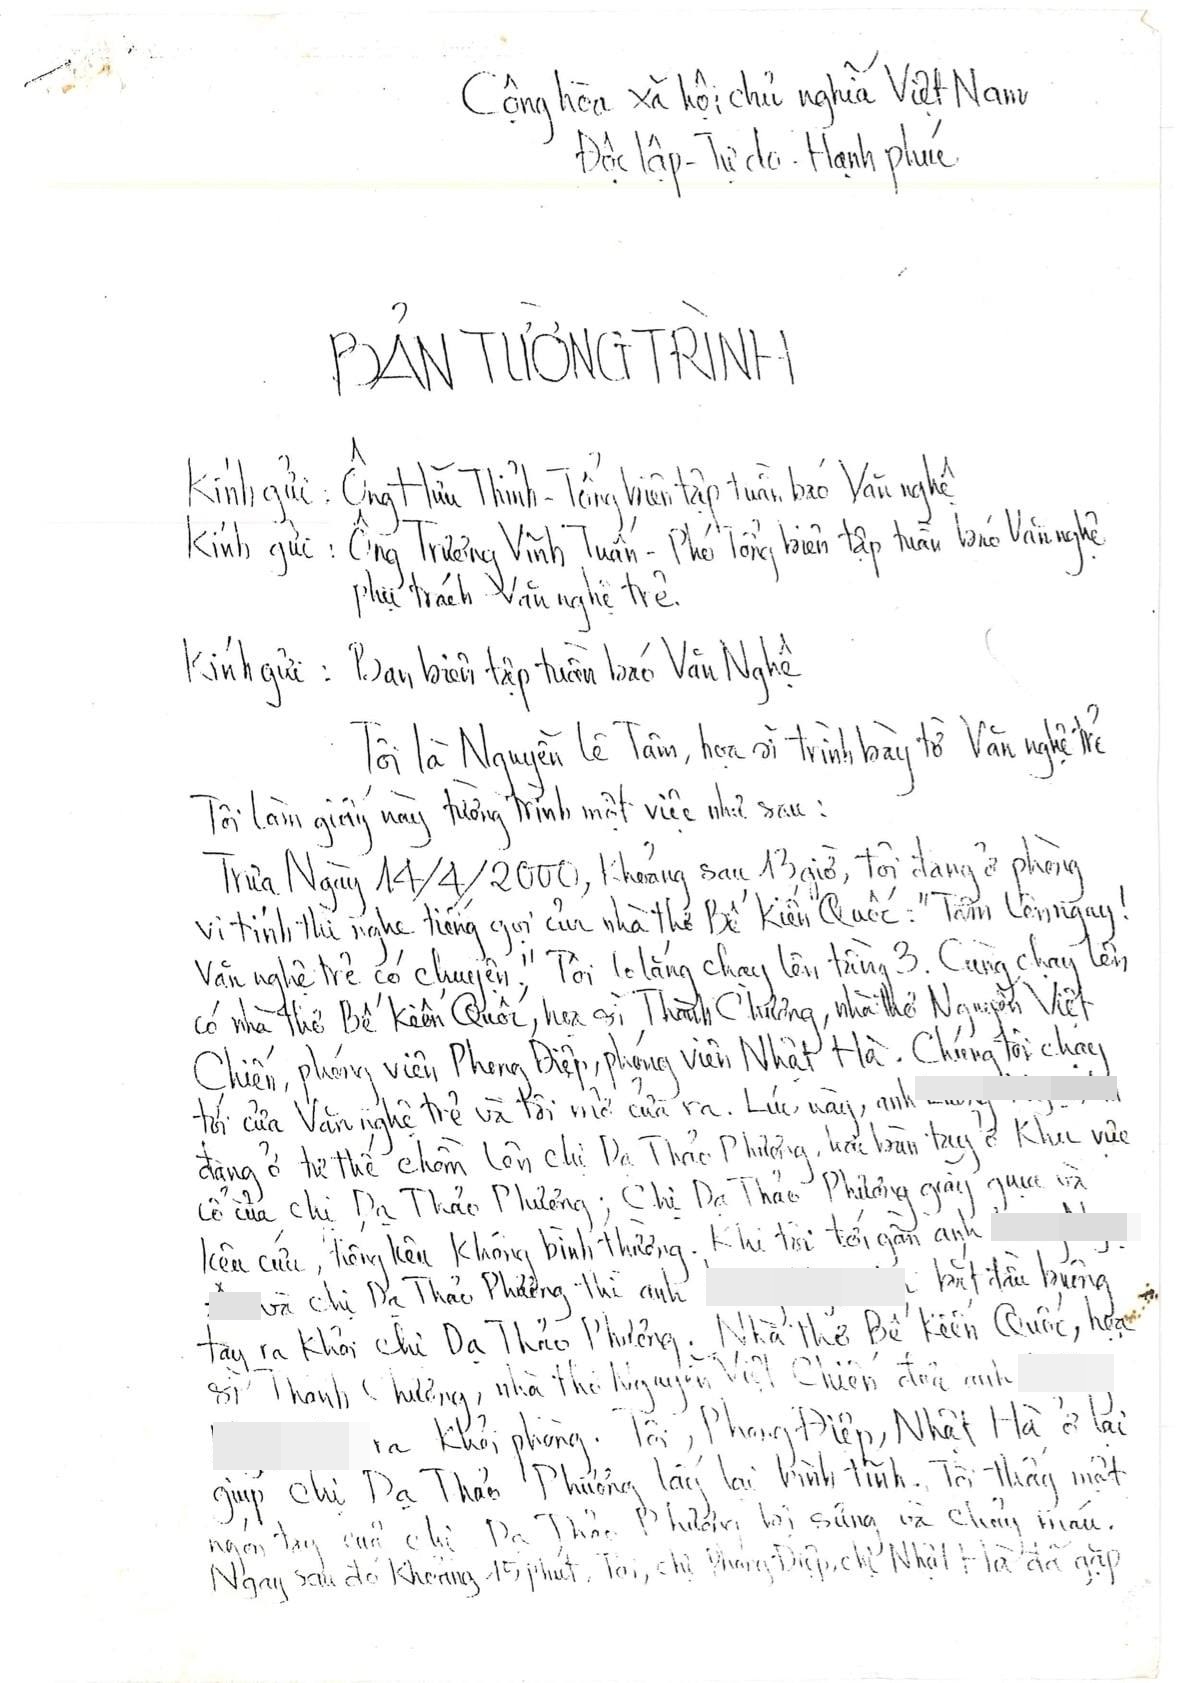 Cộng hòa xã hội chủ nghĩa Việt Nam
Độc lập - Tự do - Hạnh phúc
BẢN TƯỜNG TRÌNH
Kính gửi : Ông Hữu Thỉnh - Tổng biên tập tuần báo Văn nghệ
Kính gửi : Ông Trương Vĩnh Tuấn - Phó Tổng biên tập tuần báo Văn nghệ
phụ trách Văn nghệ trẻ.
Kính gửi : Ban biên tập tuần báo Văn Nghệ
Tôi là Nguyễn Lê Tâm, họa sĩ trình bày tờ Văn nghệ trẻ
Tôi làm giấy này tường trình một việc như sau :
Trưa Ngày 14/4/2000, khoảng sau 13 giờ, tôi đang ở phòng
vi tính thì nghe tiếng gọi của nhà thơ Bế Kiến Quốc : "Tâm lên ngay!
Văn nghệ trẻ có chuyện." Tôi lo lắng chạy lên tầng 3. Cùng chạy lên
có nhà thơ Bế Kiến Quốc, họa sĩ Thành Chương, nhà thơ Nguyễn Việt
Chiến, phóng viên Phong Điệp, phóng viên Nhật Hà. Chúng tôi chạy
tới cửa Văn nghệ trẻ và tôi mở cửa ra. Lúc này, anh
đang ở tư thế chồm lên chị Dạ Thảo Phương, hai bàn tay ở khu vực
cổ của chị Dạ Thảo Phương; Chị Dạ Thảo Phương giãy giụa và
kêu cứu, tiếng kêu không bình thường. Khi tôi tới gần anh
và chị Dạ Thảo Phương thì anh bắt đầu buông
tay ra khỏi chị Dạ Thảo Phương. Nhà thơ Bế Kiến Quốc, họa
sĩ Thành Chương, nhà thơ Nguyễn Việt Chiến đưa anh
ra khỏi phòng. Tôi, Phong Điệp, Nhật Hà ở lại
giúp chị Dạ Thảo Phương lấy lại bình tĩnh. Tôi thấy một
ngón tay của chị Dạ Thảo Phương bị sưng và chảy máu.
Ngay sau đó khoảng 15 phút, Tôi, chị Phong Điệp, chị Nhật Hà đã gặp